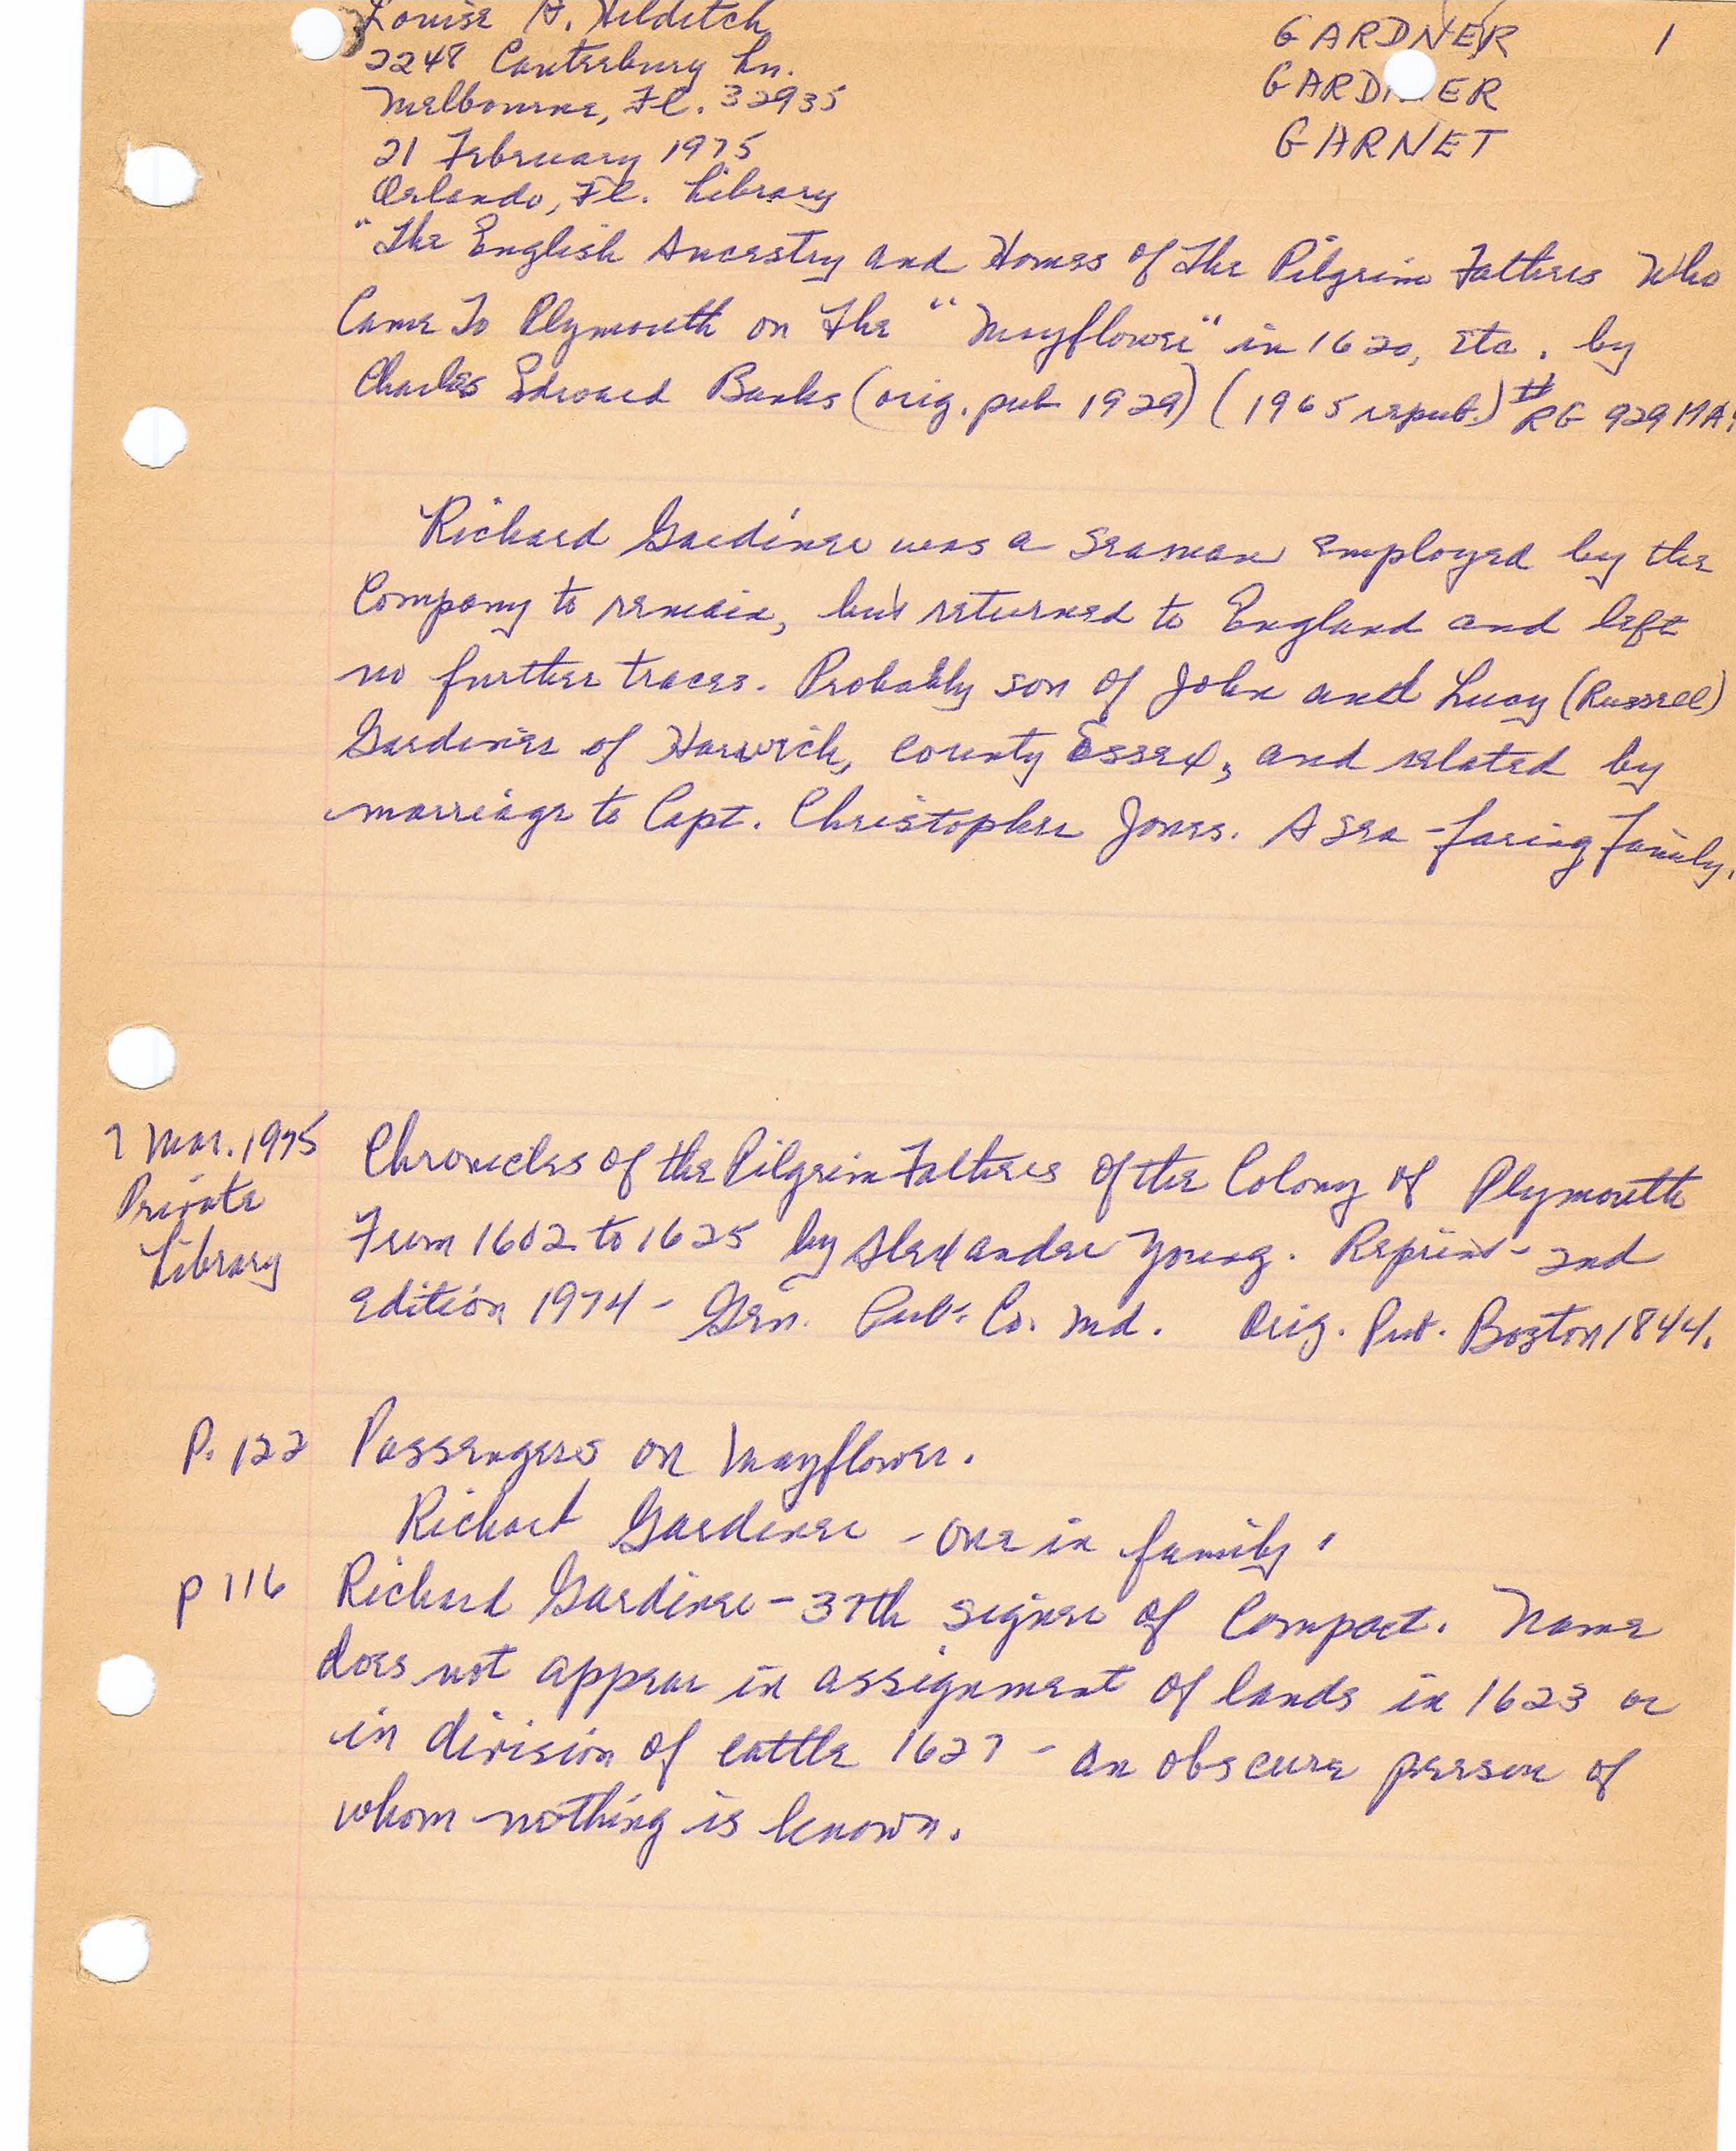 Louise A. Hilditch
2248 Canterbury Ln.
Melbourne, Fl. 32935
21 February 1975
Orlando, Fl. Library
GARDNER 1
GARDNER
GARNET
"The English Ancestry and Homes of The Pilgrim Fathers Who
Came To Plymouth on The "Mayflower" in 1620, etc. by
Charles Edward Banks (orig. pub 1929) (1965 repub.) # RG 929 MA
Richard Gardiner was a seaman employed by the
Company to remain, but returned to England and left
no further traces. Probably son of John and Lucy (Russell)
Gardiner of Harwich, County Essex, and related by
marriage to Capt. Christopher Jones. A sea-faring family.
7 Mar. 1975
Private
Library
Chronicles of the Pilgrim Fathers of the Colony of Plymouth
From 1602 to 1625 by Alexander Young. Reprint - 2nd
Edition 1974 - Gen. Pub. Co. Md. Orig. Pub. Boston 1844.
P. 122 Passengers on Mayflower.
Richard Gardiner - one in family.
p 116 Richard Gardiner - 37th signer of Compact. Name
does not appear in assignment of lands in 1623 or
in division of cattle 1627 - an obscure person of
whom nothing is known.